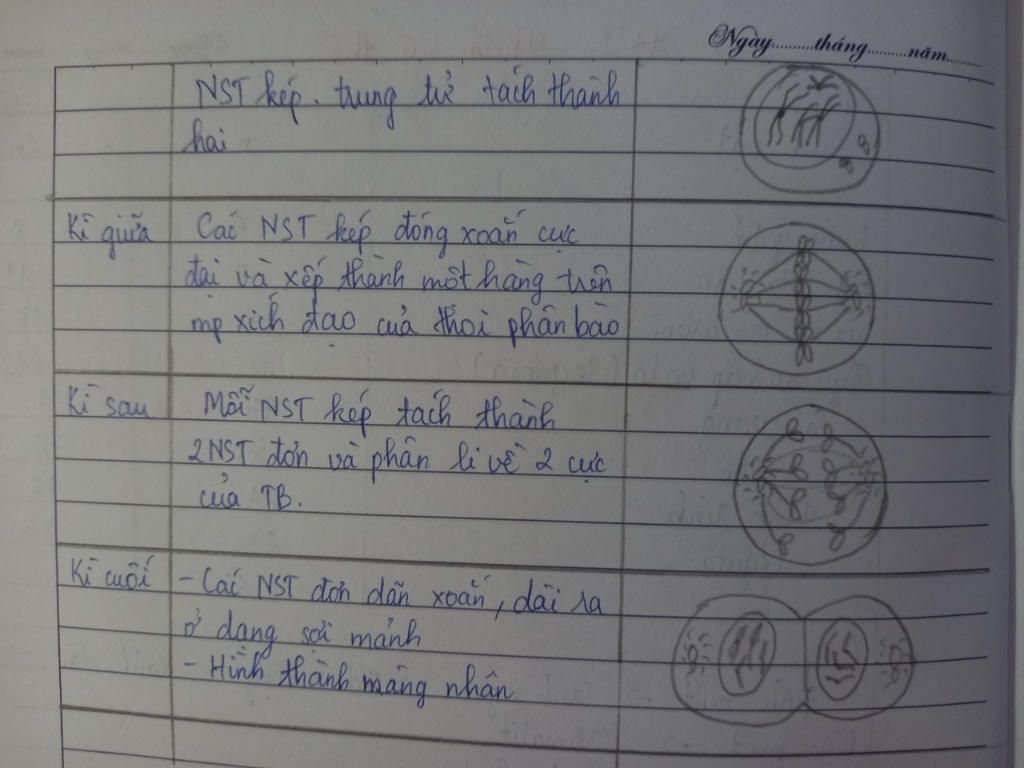 Ngày..........tháng.........năm.........
NST kép. trung tử tách thành
hai
Kì giữa
Các NST kép đóng xoắn cực
đại và xếp thành một hàng trên
mp xích đạo của thoi phân bào
Kì sau
Mỗi NST kép tách thành
2NST đơn và phân li về 2 cực
của TB.
Kì cuối
- Các NST đơn dãn xoắn, dài ra
ở dạng sợi mảnh
- Hình thành màng nhân